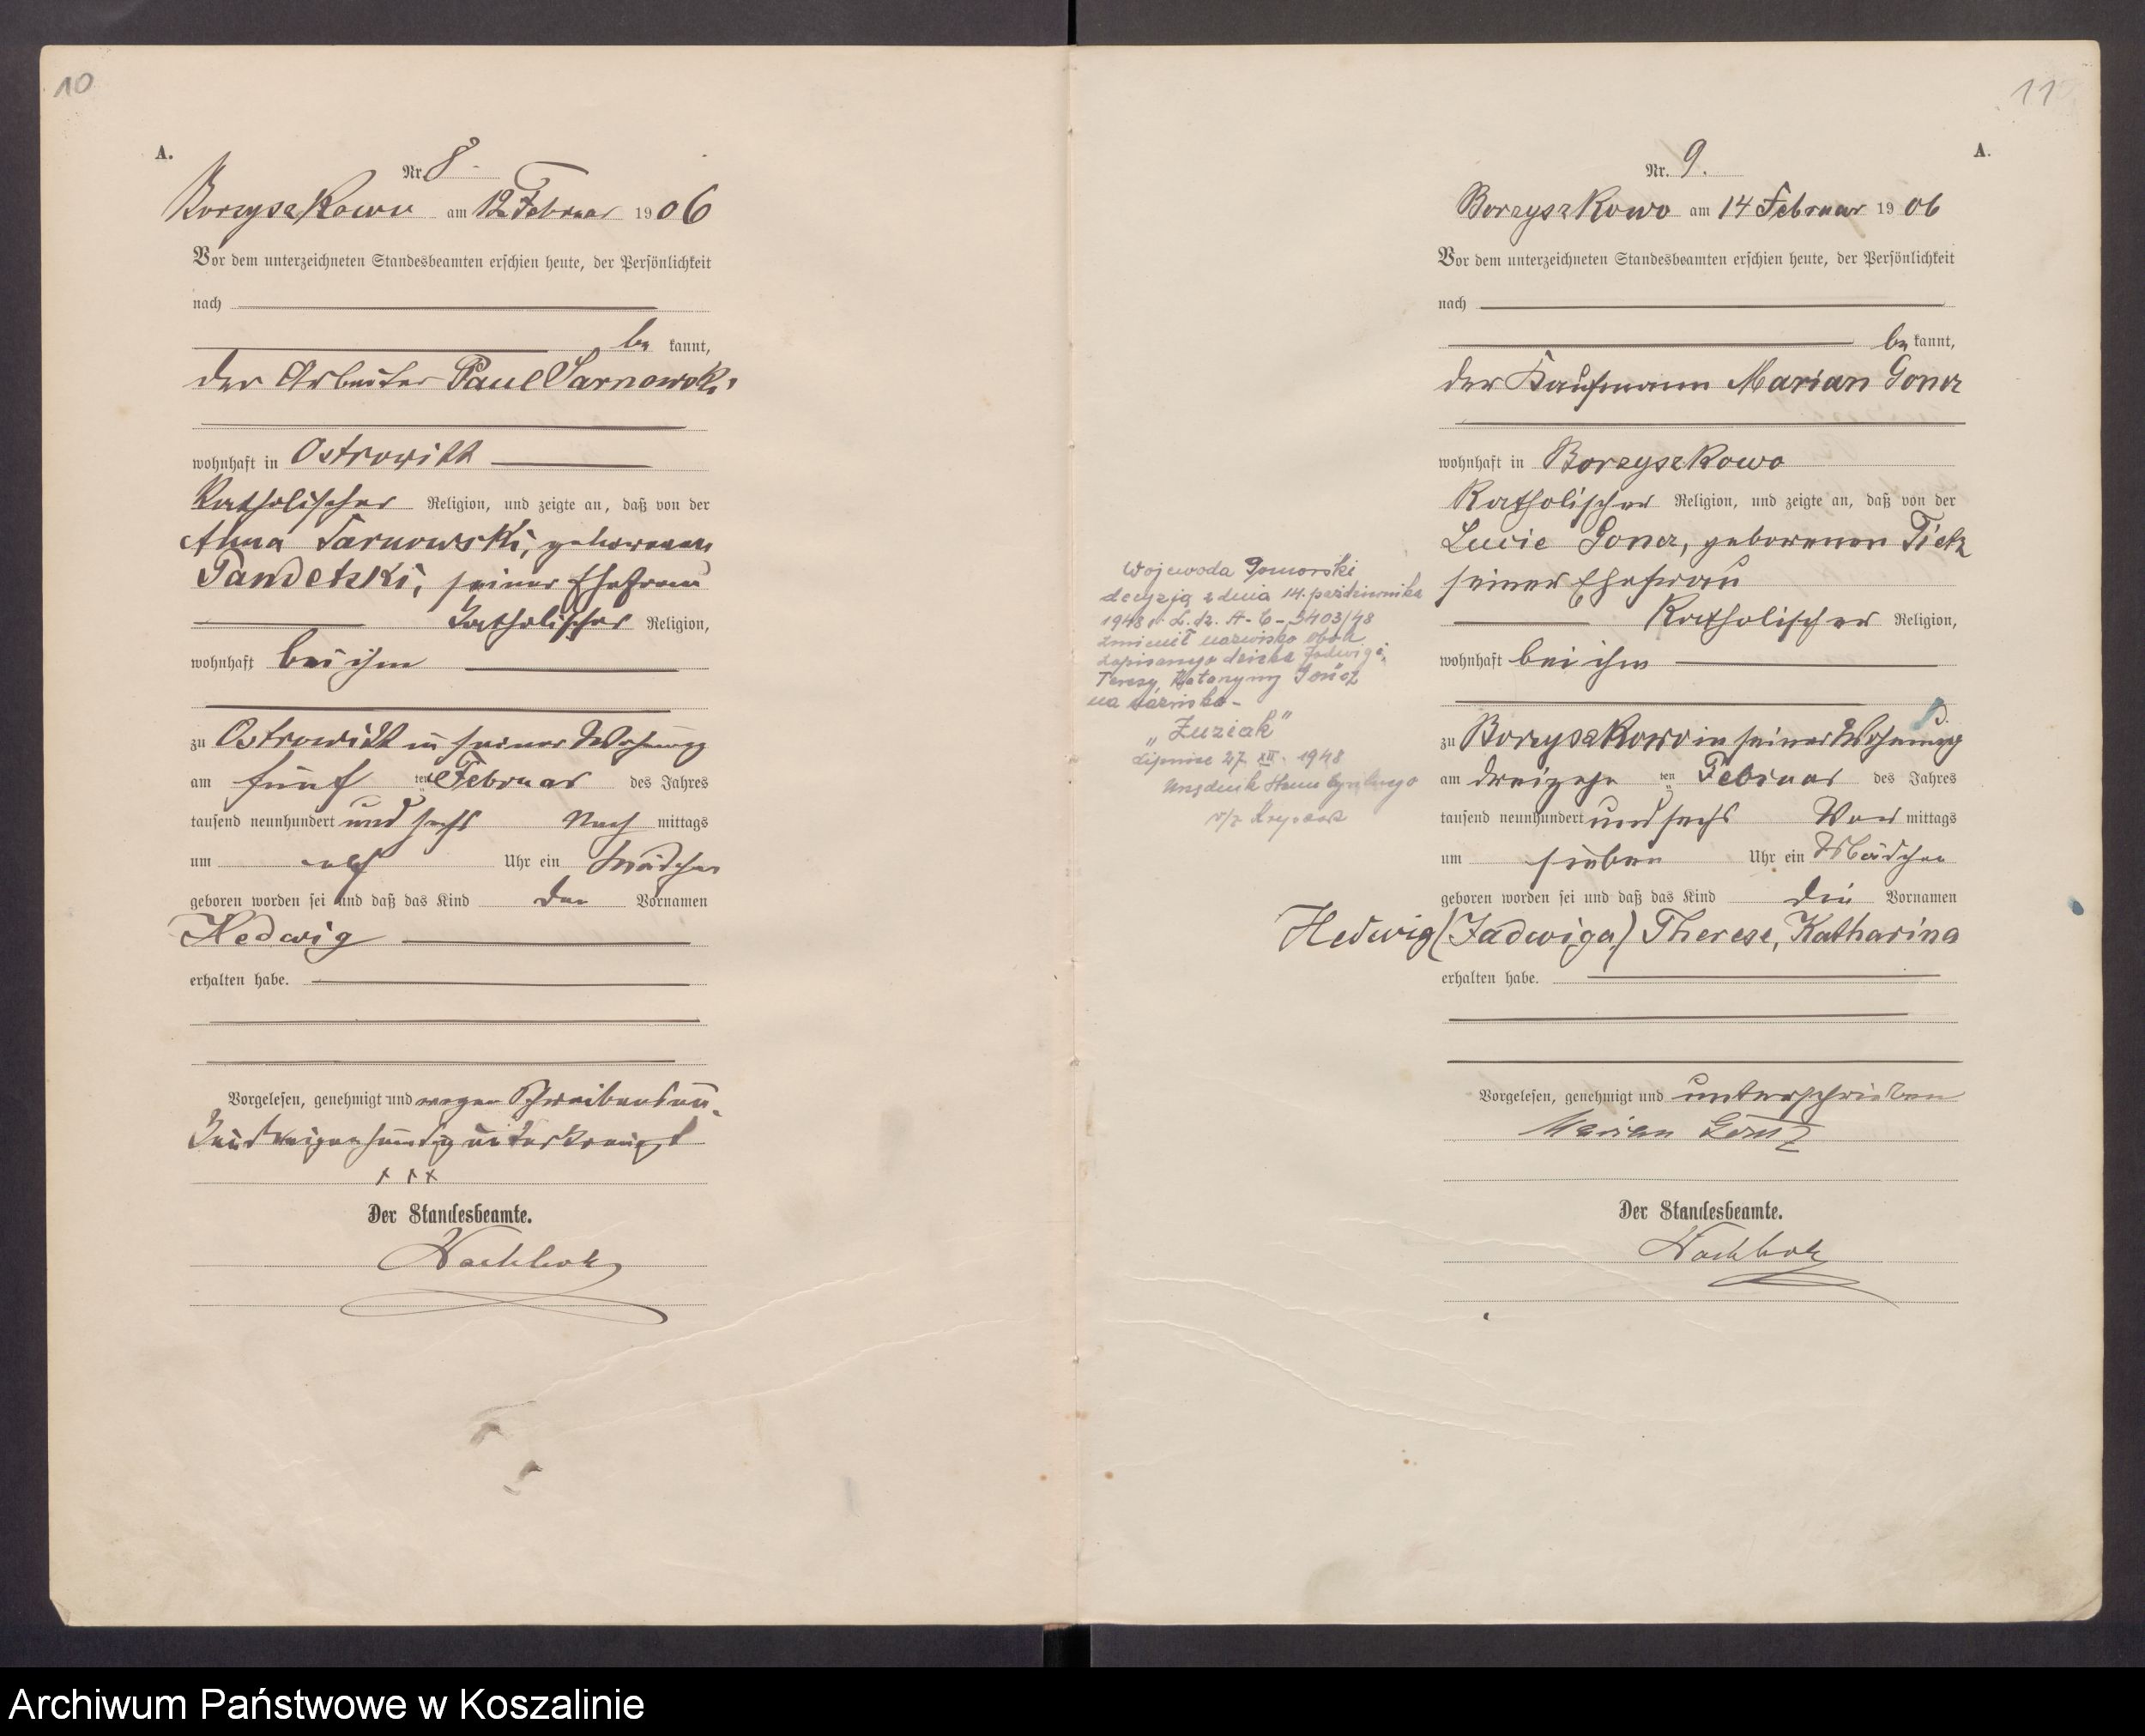 10
A.
Nr. 8.
Borzyszkowo am 12 Februar 1906
Vor dem unterzeichneten Standesbeamten erschien heute, der Persönlichkeit
nach
be kannt,
der Arbeiter Paul Tarnowski
wohnhaft in Ostrowitt
Katholischer Religion, und zeigte an, daß von der
Anna Tarnowski, geborenen
seiner Ehefrau
Katholischer Religion,
wohnhaft bei ihm
zu Ostrowitt in seiner Wohnung
am fünf ten Februar des Jahres
tausend neunhundert und sechs Nach mittags
um elf Uhr ein Mädchen
geboren worden sei und daß das Kind den Vornamen
Hedwig
erhalten habe.
Vorgelesen, genehmigt und wegen Schreibensun-
unterkreuzt
x x x
Der Standesbeamte.
11
A.
Nr. 9.
Borzyszkowo am 14 Februar 1906
Vor dem unterzeichneten Standesbeamten erschien heute, der Persönlichkeit
nach
be kannt,
der Kaufmann Marian Goncz
wohnhaft in Borzyszkowo
Katholischer Religion, und zeigte an, daß von der
Lucie Goncz, geborenen Tietz
seiner Ehefrau
Katholischer Religion,
wohnhaft bei ihm
zu Borzyszkowo in seiner Wohnung
am dreizehn ten Februar des Jahres
tausend neunhundert und sechs Vor mittags
um sieben Uhr ein Mädchen
geboren worden sei und daß das Kind die Vornamen
Hedwig (Jadwiga) Therese, Katharina
erhalten habe.
Vorgelesen, genehmigt und unterschrieben
Marian Goncz
Der Standesbeamte.
Wojewoda Pomorski
decyzją z dnia 14. października
1948 r. L. dz. A-C-3403/48
zmienił nazwisko obok
zapisanego dziecka Jadwigi,
Teresy, Katarzyny Gończ
na nazwisko-
„Zuziak"
Lipnica 27. XII. 1948
Urzędnik Stanu Cywilnego
Archiwum Państwowe w Koszalinie